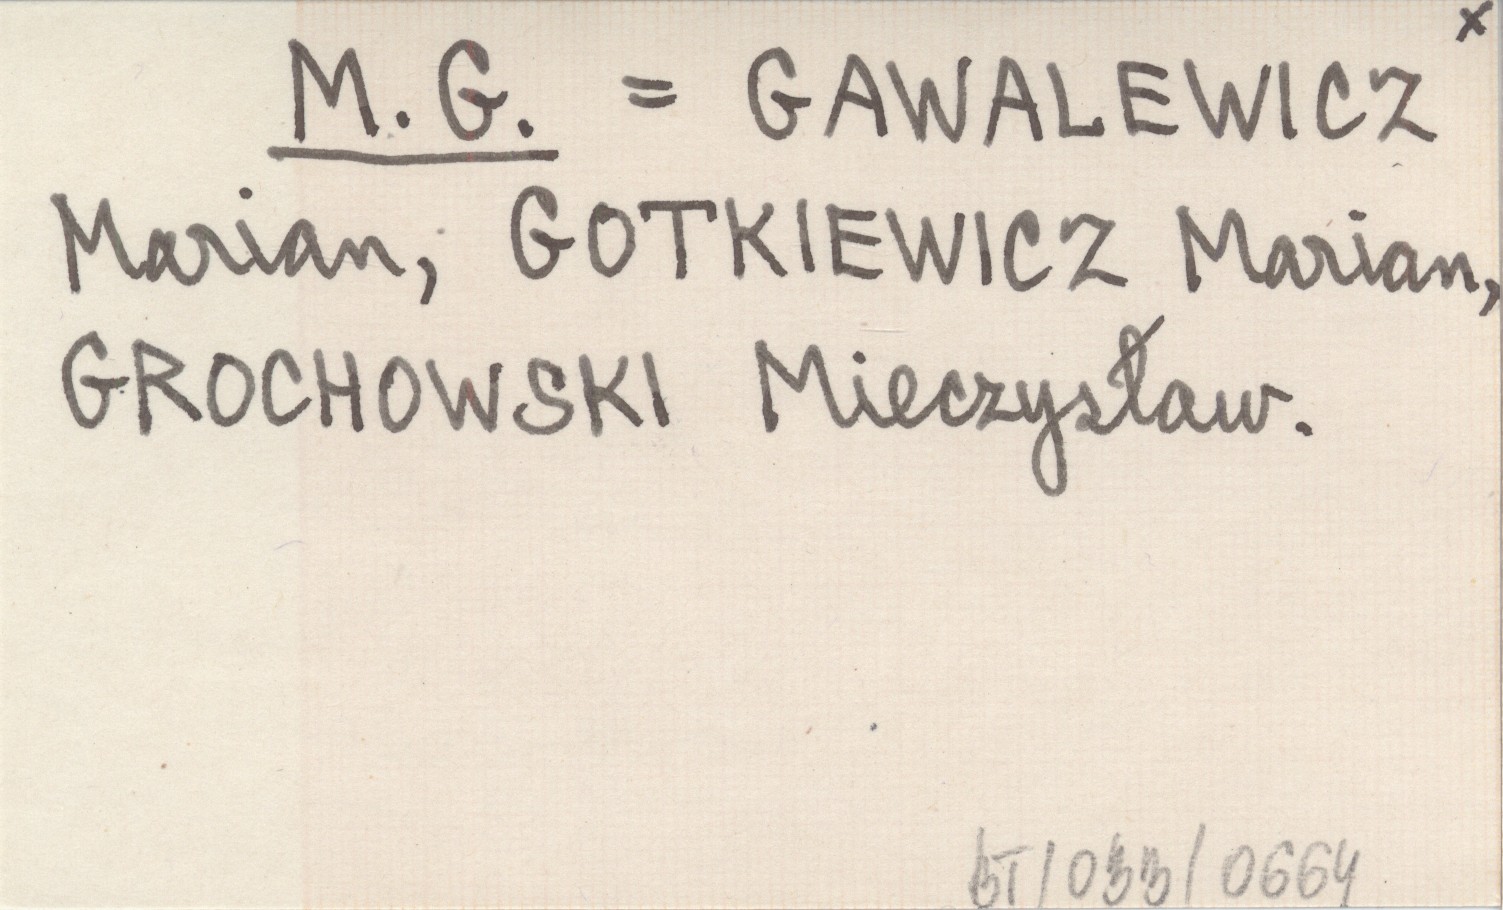 x
M. G. = GAWALEWICZ
Marian, GOTKIEWICZ Marian,
GROCHOWSKI Mieczysław.
BT/033/0664